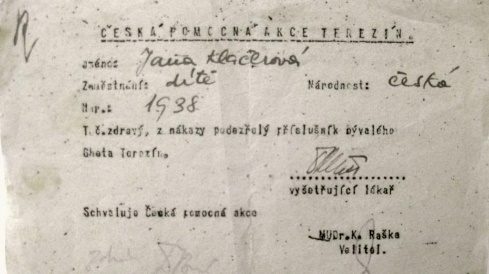 ČESKÁ POMOCNÁ AKCE TEREZÍN.
Jméno: Jana
Zaměstnání: dítě Národnost: česká
Nar.: 1938
T.č.zdravý, z nákazy podezřelý příslušník bývalého
Gheta Terezín.
vyšetřující lékař
Schvaluje Česká pomocná akce
MUDr.K. Raška
Velitel.